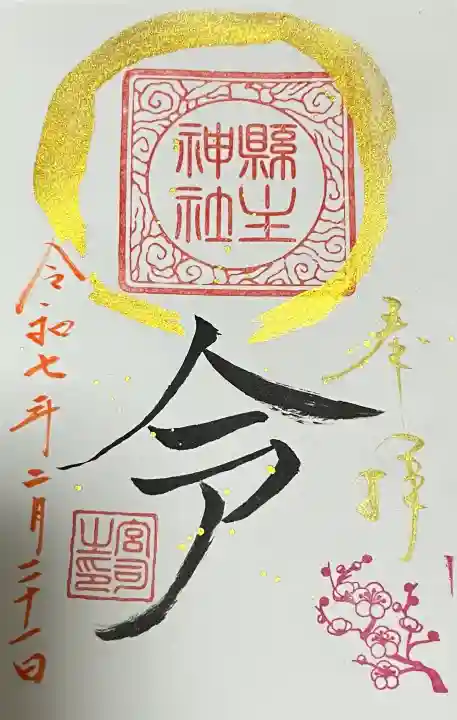 奉拝
縣主
神社
令
宮司
之印
令和七年二月二十一日